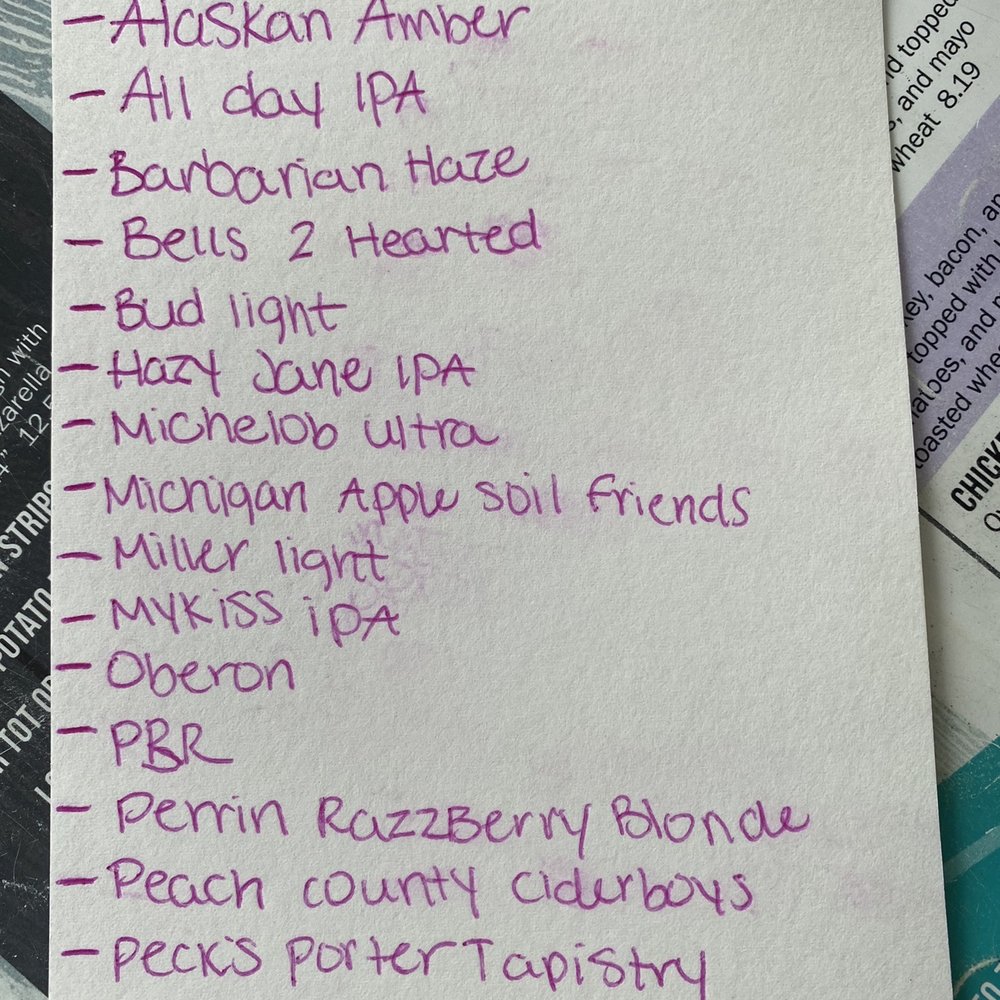 - Alaskan Amber
- All day IPA
- Barbarian Haze
- Bells 2 Hearted
- Bud light
- Hazy Jane IPA
- Michelob ultra
- Michigan Apple soil friends
- Miller light
- MyKiss iPA
- Oberon
- PBR
- Perrin RazzBerry Blonde
- Peach county ciderboys
- Peck's porter Tapistry
with
12
STRIPS
POTATO
TOT
topped
and mayo
wheat 8.19
bacon,
topped with
and
toasted